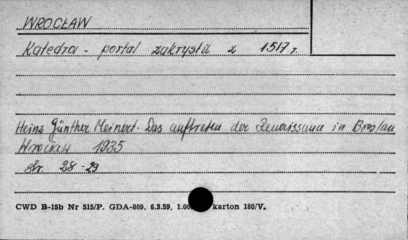 WROCŁAW
Katedra - portal zakrystii z 1517 r.
Heinz Günther Meinert - Das auftreten der Renaissance in Breslau
Wrocław 1935
str. 28-29
CWD B-15b Nr 515/P. GDA-809. 6.3.59. 1.00 karton 180/V.